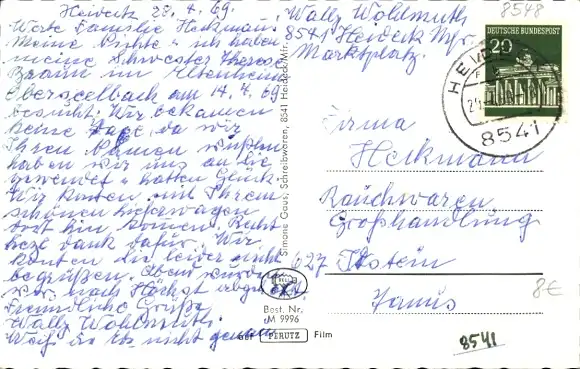 Heideck 28.4.69.
Werte Familie Heckmann.
Meine Nichte u ich haben
meine Schwester Therese
Braun im Altenheim
am 14.4.69
besucht. Wir bekamen
keine Taxe, da wir
Ihren Namen wußten
haben wir uns an Sie
gewendet u hatten Glück.
Wir konnten mit Ihrem
schönen Lieferwagen
dort hin kommen. Recht
herz. dank dafür. Wir
konnten Sie leider nicht
begrüßen. Eben wurden
wir nach Höchst
Freundliche Grüße
Wally Wohlmuth.
Weiß die Hs. nicht genau
Wally Wohlmuth
8541 Heideck Mfr.
Marktplatz.
8548
DEUTSCHE BUNDESPOST
20
HEI
8541
Firma
Heckmann
Rauchwaren
Großhandlung
627 Itstein
Taunus
8€
8541
Simone Gaus, Schreibwaren, 8541 Heideck/Mfr.
Best. Nr.
M 9996
auf PERUTZ Film